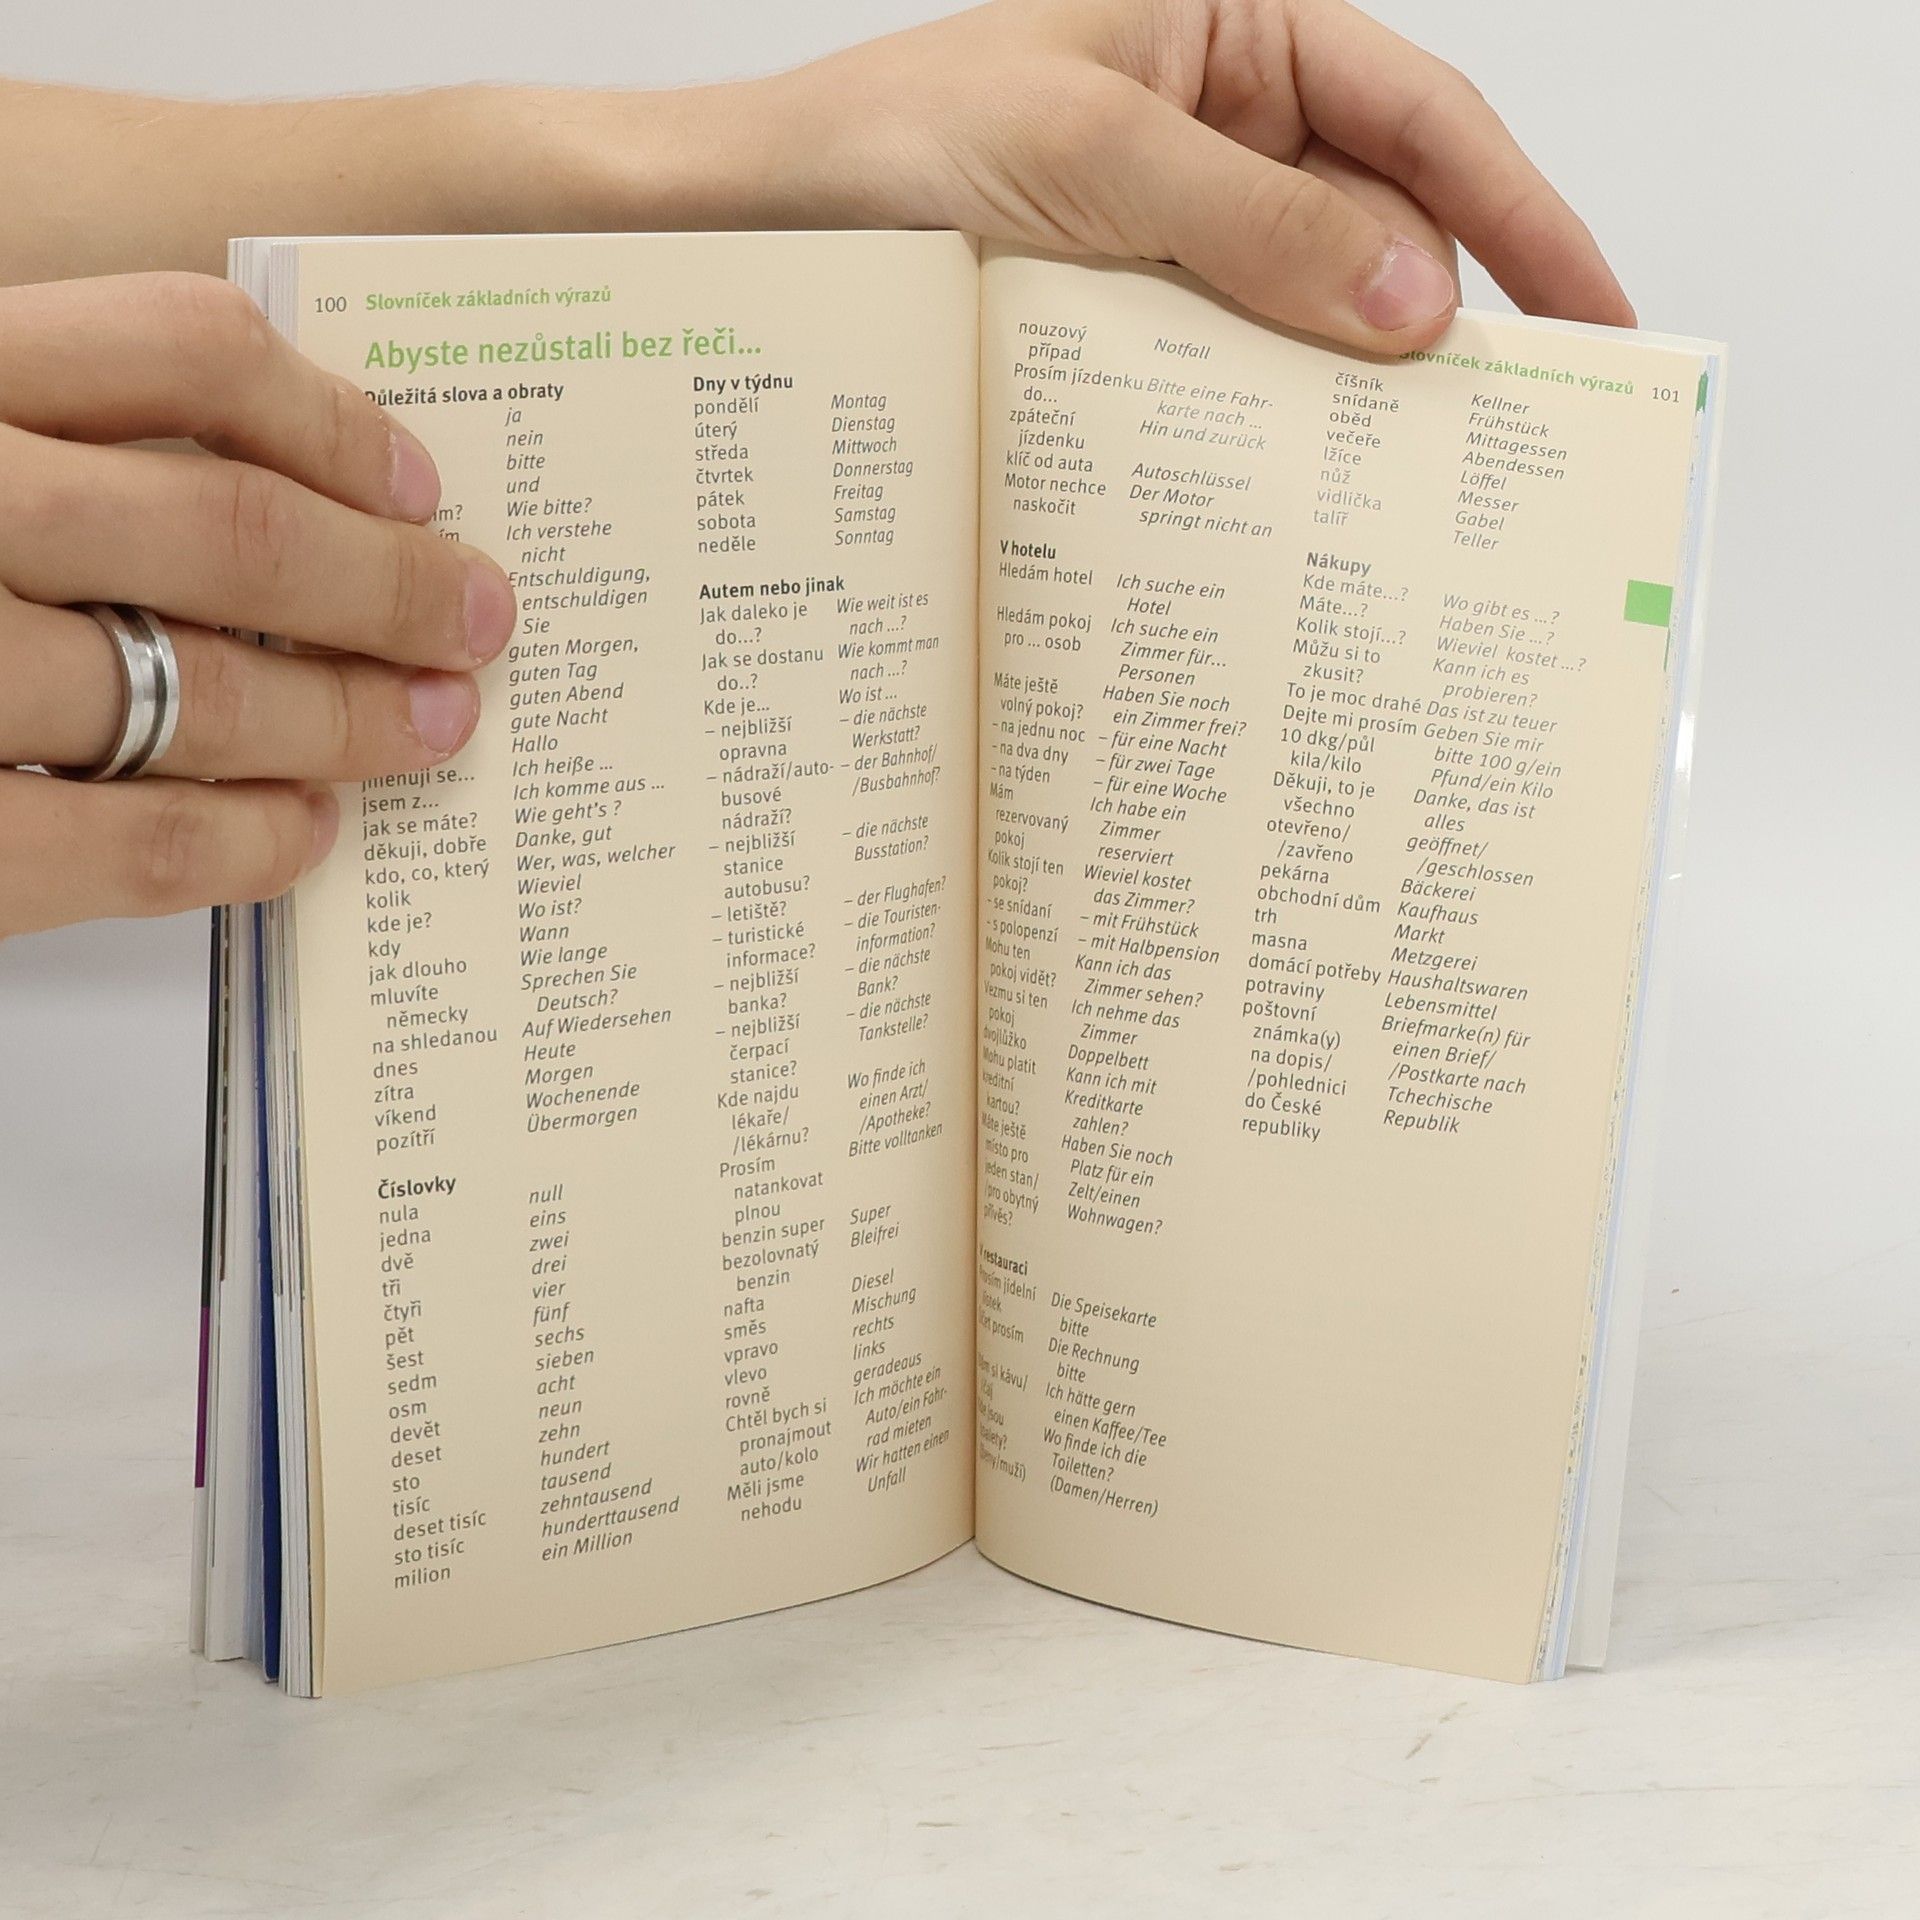 100 Slovníček základních výrazů
Abyste nezůstali bez řeči...
Důležitá slova a obraty
ja
nein
bitte
und
Wie bitte?
Ich verstehe
nicht
Entschuldigung,
entschuldigen
Sie
guten Morgen,
guten Tag
guten Abend
gute Nacht
Hallo
jmenuji se... Ich heiße ...
jsem z... Ich komme aus ...
jak se máte? Wie geht's ?
děkuji, dobře Danke, gut
kdo, co, který Wer, was, welcher
kolik Wieviel
kde je? Wo ist?
kdy Wann
jak dlouho Wie lange
mluvíte Sprechen Sie
německy Deutsch?
na shledanou Auf Wiedersehen
dnes Heute
zítra Morgen
víkend Wochenende
pozítří Übermorgen
Číslovky
nula null
jedna eins
dvě zwei
tři drei
čtyři vier
pět fünf
šest sechs
sedm sieben
osm acht
devět neun
deset zehn
sto hundert
tisíc tausend
deset tisíc zehntausend
sto tisíc hunderttausend
milion ein Million
Dny v týdnu
pondělí Montag
úterý Dienstag
středa Mittwoch
čtvrtek Donnerstag
pátek Freitag
sobota Samstag
neděle Sonntag
Autem nebo jinak
Jak daleko je Wie weit ist es
do...? nach ...?
Jak se dostanu Wie kommt man
do..? nach ...?
Kde je... Wo ist ...
– nejbližší – die nächste
opravna Werkstatt?
– nádraží/auto- – der Bahnhof/
busové /Busbahnhof?
nádraží?
– nejbližší – die nächste
stanice Busstation?
autobusu?
– letiště? – der Flughafen?
– turistické – die Touristen-
informace? information?
– nejbližší – die nächste
banka? Bank?
– nejbližší – die nächste
čerpací Tankstelle?
stanice?
Kde najdu Wo finde ich
lékaře/ einen Arzt/
/lékárnu? /Apotheke?
Prosím Bitte volltanken
natankovat
plnou
benzin super Super
bezolovnatý Bleifrei
benzin
nafta Diesel
směs Mischung
vpravo rechts
vlevo links
rovně geradeaus
Chtěl bych si Ich möchte ein
pronajmout Auto/ein Fahr-
auto/kolo rad mieten
Měli jsme Wir hatten einen
nehodu Unfall
Slovníček základních výrazů 101
nouzový Notfall
případ
Prosím jízdenku Bitte eine Fahr-
do... karte nach ...
zpáteční Hin und zurück
jízdenku
klíč od auta Autoschlüssel
Motor nechce Der Motor
naskočit springt nicht an
V hotelu
Hledám hotel Ich suche ein
Hotel
Hledám pokoj Ich suche ein
pro ... osob Zimmer für...
Personen
Máte ještě Haben Sie noch
volný pokoj? ein Zimmer frei?
– na jednu noc – für eine Nacht
– na dva dny – für zwei Tage
– na týden – für eine Woche
Mám Ich habe ein
rezervovaný Zimmer
pokoj reserviert
Kolik stojí ten Wieviel kostet
pokoj? das Zimmer?
– se snídaní – mit Frühstück
– s polopenzí – mit Halbpension
Mohu ten Kann ich das
pokoj vidět? Zimmer sehen?
Vezmu si ten Ich nehme das
pokoj Zimmer
dvojlůžko Doppelbett
Mohu platit Kann ich mit
kreditní Kreditkarte
kartou? zahlen?
Máte ještě Haben Sie noch
místo pro Platz für ein
jeden stan/ Zelt/einen
/pro obytný Wohnwagen?
přívěs?
V restauraci
Prosím jídelní Die Speisekarte
lístek bitte
Účet prosím Die Rechnung
bitte
si kávu/ Ich hätte gern
einen Kaffee/Tee
Wo finde ich die
Toiletten?
(Damen/Herren)
číšník Kellner
snídaně Frühstück
oběd Mittagessen
večeře Abendessen
lžíce Löffel
nůž Messer
vidlička Gabel
talíř Teller
Nákupy
Kde máte...? Wo gibt es ...?
Máte...? Haben Sie ...?
Kolik stojí...? Wieviel kostet ...?
Můžu si to Kann ich es
zkusit? probieren?
To je moc drahé Das ist zu teuer
Dejte mi prosím Geben Sie mir
10 dkg/půl bitte 100 g/ein
kila/kilo Pfund/ein Kilo
Děkuji, to je Danke, das ist
všechno alles
otevřeno/ geöffnet/
/zavřeno /geschlossen
pekárna Bäckerei
obchodní dům Kaufhaus
trh Markt
masna Metzgerei
domácí potřeby Haushaltswaren
potraviny Lebensmittel
poštovní Briefmarke(n) für
známka(y) einen Brief/
na dopis/ /Postkarte nach
/pohlednici Tchechische
do České Republik
republiky